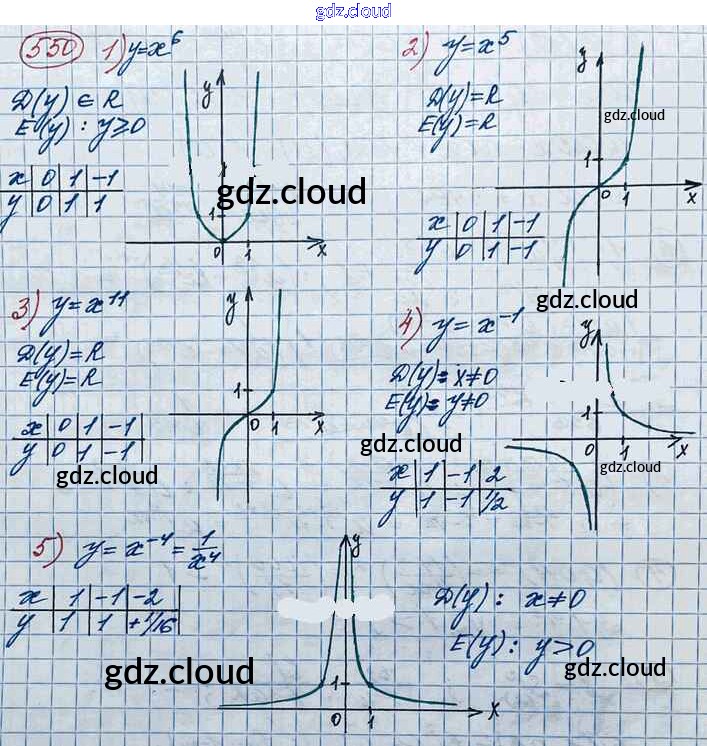 gdz.cloud
550 1) y=x⁶
D(y) ∈ R
E(y) : y≥0
x 0 1 -1
y 0 1 1
y
1
0 1 x
gdz.cloud
2) y=x⁵
D(y)=R
E(y)=R
x 0 1 -1
y 0 1 -1
y
gdz.cloud
1
0 1 x
gdz.cloud
3) y=x¹¹
D(y)=R
E(y)=R
x 0 1 -1
y 0 1 -1
gdz.cloud
y
1
0 1 x
4) y=x⁻¹
D(y)= x≠0
E(y)= y≠0
gdz.cloud
x 1 -1 2
y 1 -1 1/2
y
1
0 1 x
gdz.cloud
5) y=x⁻⁴=1/x⁴
x 1 -1 -2
y 1 1 +1/16
gdz.cloud
y
1
0 1 x
D(y): x≠0
E(y): y>0
gdz.cloud